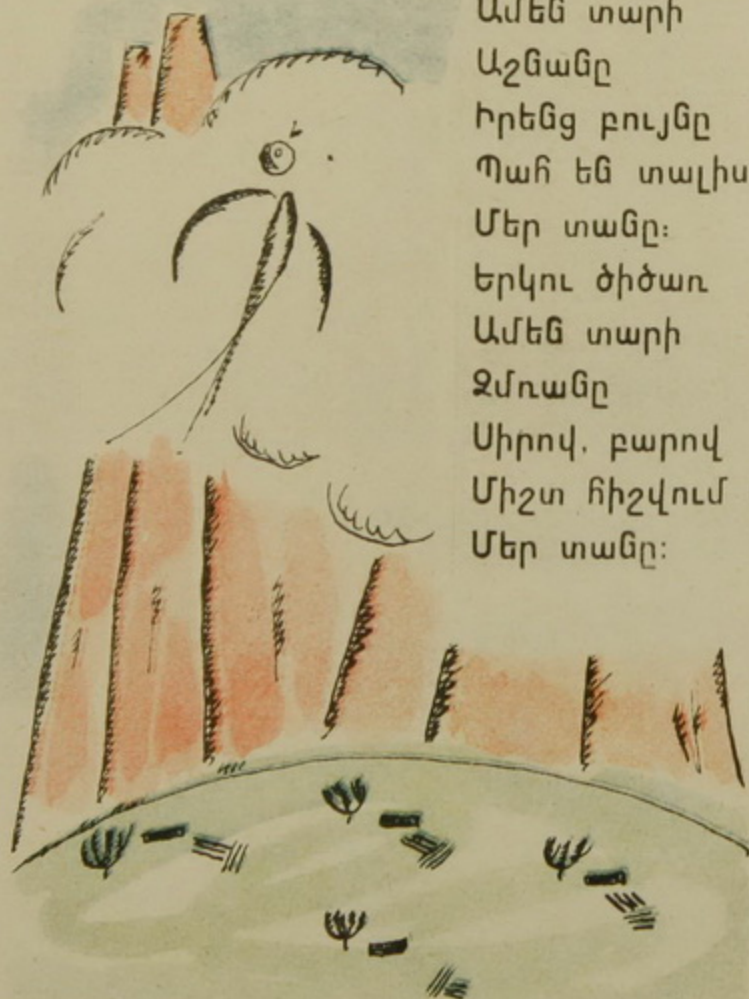 Ամեն տարի
Աշնանը
Իրենց բույնը
Պահ են տալիս
Մեր տանը։
Երկու ծիծառ
Ամեն տարի
Ձմռանը
Սիրով, բարով
Միշտ հիշվում
Մեր տանը։